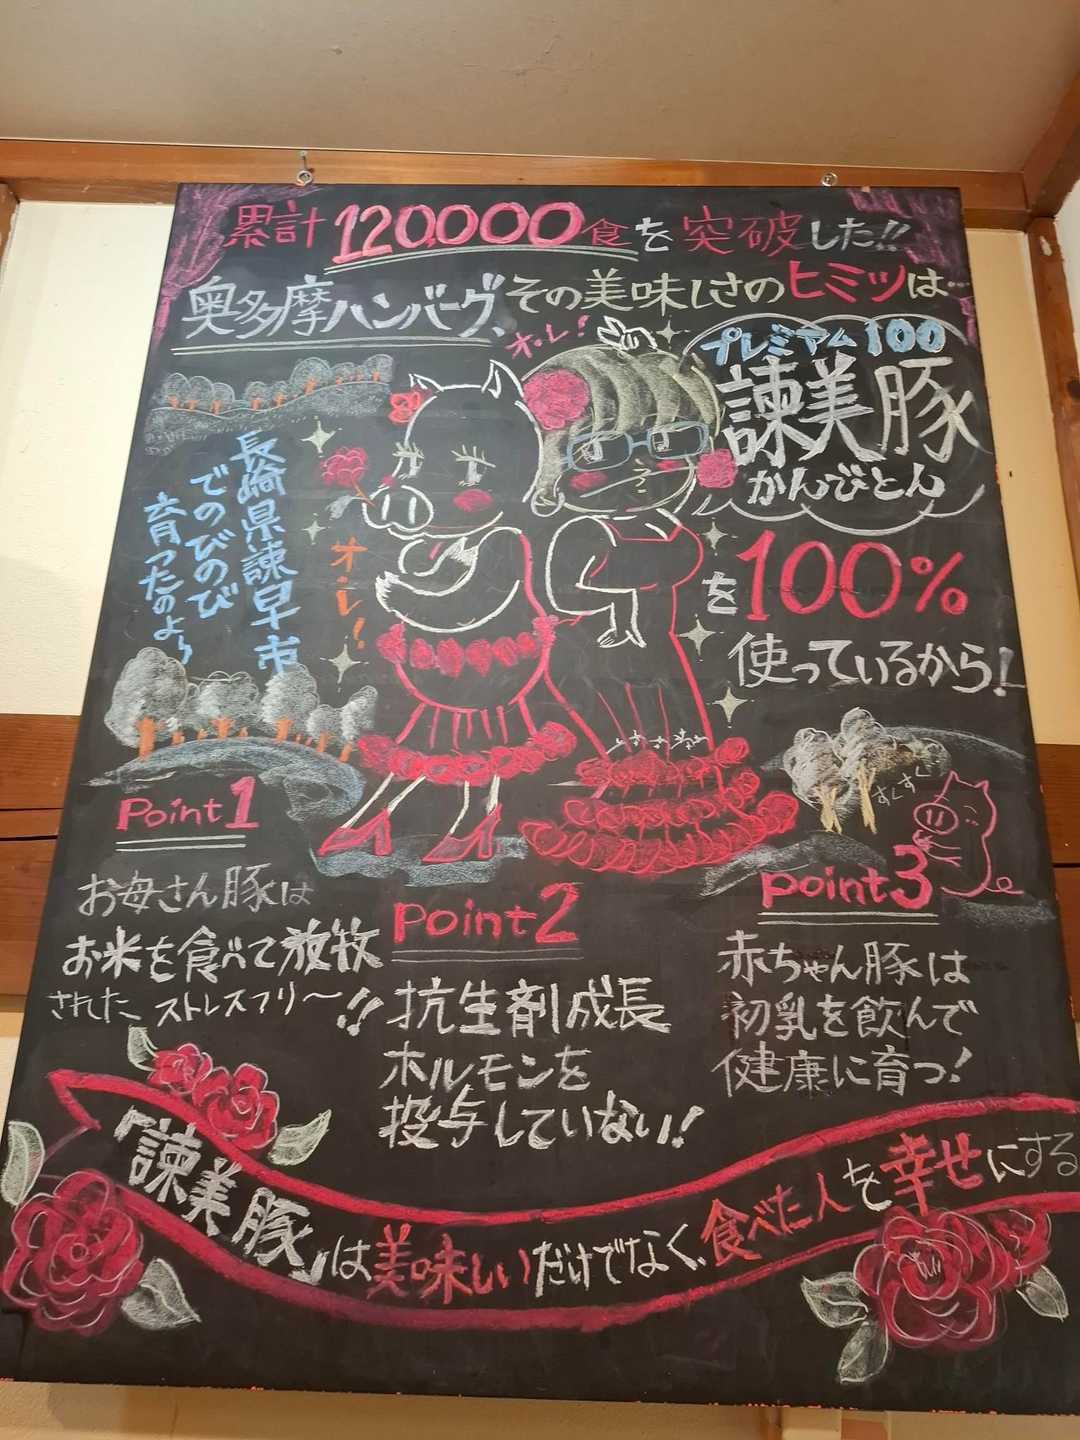 累計120,000食を突破した!!
奥多摩ハンバーグ、その美味しさのヒミツは…
オレ!
プレミアム100
諫美豚
かんびとん
を100%
使っているから!
長崎県諫早市
でのびのび
育ったのよ〜
オレ!
すくすく
Point1
お母さん豚は
お米を食べて放牧
されたストレスフリー〜!!
Point2
抗生剤成長
ホルモンを
投与していない!
Point3
赤ちゃん豚は
初乳を飲んで
健康に育つ!
「諫美豚」は美味しいだけでなく、食べた人を幸せにする